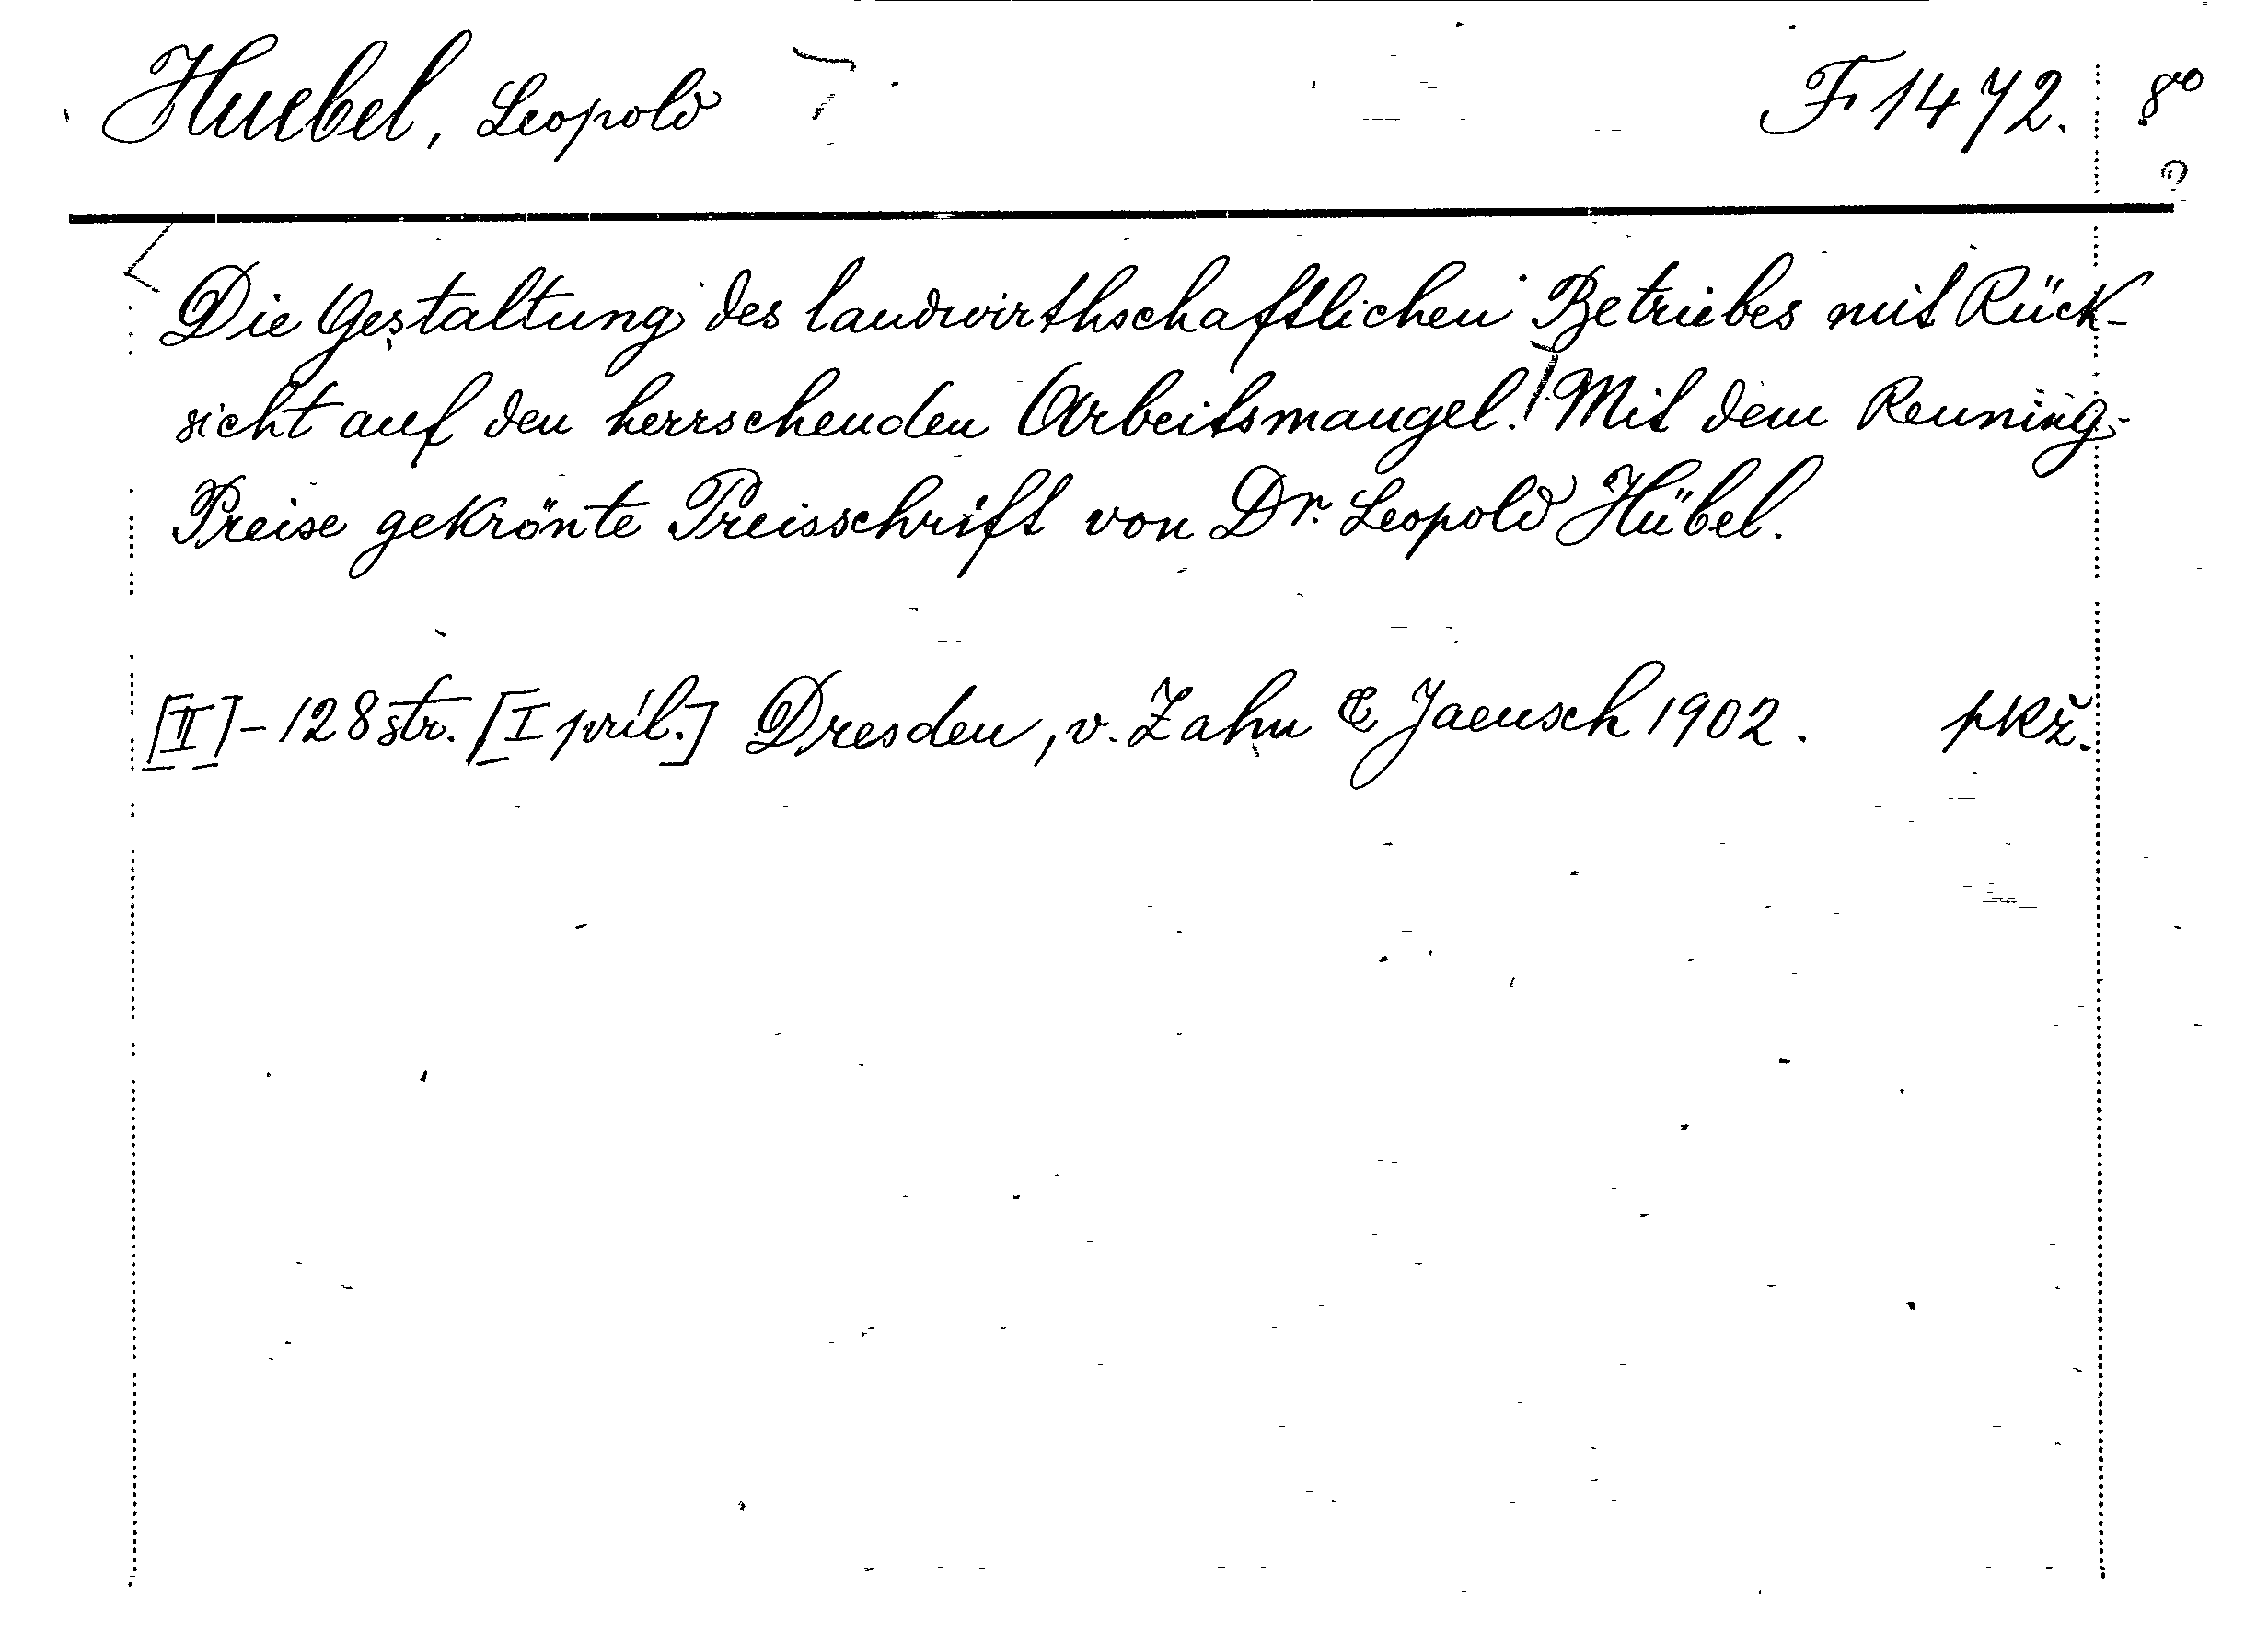 Huebel, Leopold F 1472. 8°
Die Gestaltung des landwirthschaftlichen Betriebes mit Rück-
sicht auf den herrschenden Arbeitsmangel. Mit dem Reuning-
Preise gekrönte Preisschrift von Dr. Leopold Hübel.
[II]-128 str. [I príl.] Dresden, v. Zahn & Jaensch 1902. pkž.